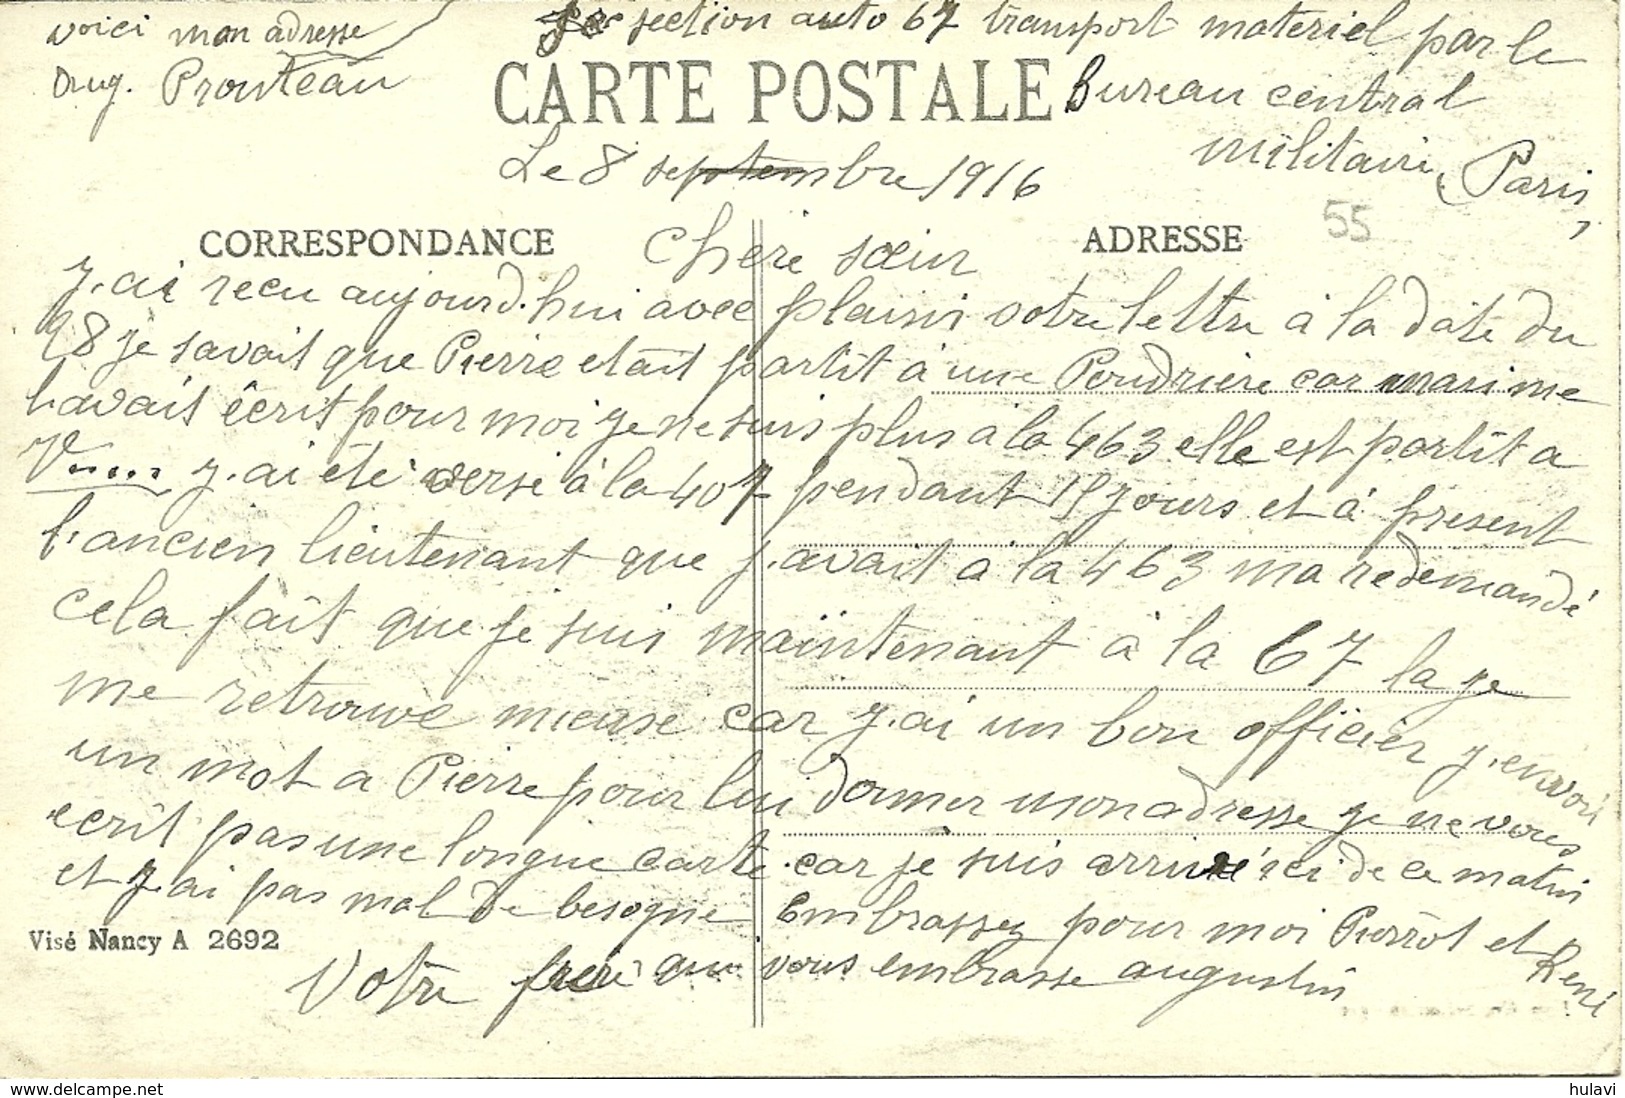 voici mon adresse
Aug. Prouteau
section auto 67 transport materiel par le
Bureau central
militaire, Paris,
CARTE POSTALE
Le 8 septembre 1916
55
CORRESPONDANCE
ADRESSE
Chère sœur
J.ai recu aujourd.hui avec plaisir votre lettre à la date du
28 je savait que Pierre etait partit à une Poudriere car maxime
l.avait écrit pour moi je ne suis plus à la 463 elle est partît a
V..... j.ai été versé à la 407 pendant 15 jours et à present
l.ancien lieutenant que j.avait a la 463 ma redemandé
cela faît que je suis maintenant à la 67 la je
me retrouve mieuse car j.ai un bon officier j.envoie
un mot a Pierre pour lui donner mon adresse je ne vous
ecrît pas une longue carte car je suis arrivé ici de ce matin
et j.ai pas mal de besogne Embrassez pour moi Pierrot et René
Visé Nancy A 2692
Votre frere qui vous embrasse augustin
www.delcampe.net
hulavi